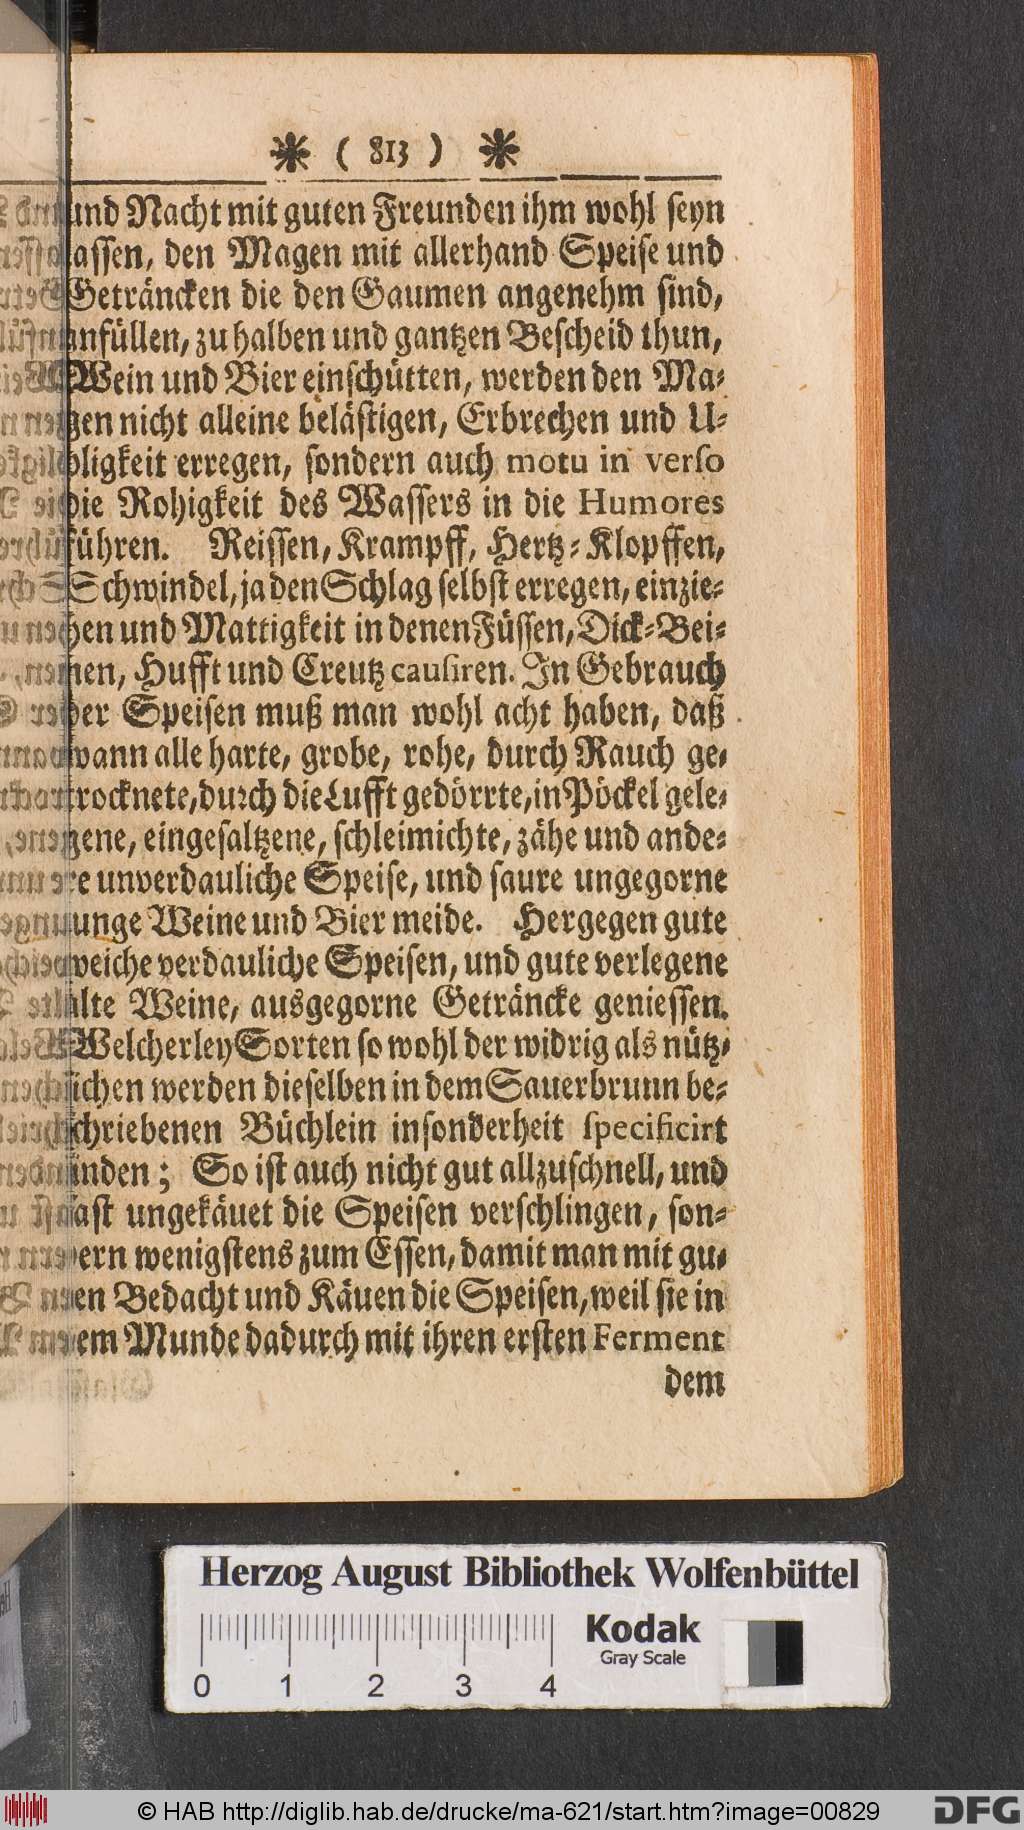 * ( 813 ) *
und Nacht mit guten Freunden ihm wohl seyn
lassen, den Magen mit allerhand Speise und
Geträncken die den Gaumen angenehm sind,
anfüllen, zu halben und gantzen Bescheid thun,
Wein und Bier einschütten, werden den Ma-
gen nicht alleine belästigen, Erbrechen und U-
bligkeit erregen, sondern auch motu in verso
die Rohigkeit des Wassers in die Humores
führen. Reissen, Krampff, Hertz-Klopffen,
Schwindel, ja den Schlag selbst erregen, einzie-
hen und Mattigkeit in denen Füssen, Dick-Bei-
nen, Hufft und Creutz causiren. In Gebrauch
der Speisen muß man wohl acht haben, daß
wann alle harte, grobe, rohe, durch Rauch ge-
trocknete, durch die Lufft gedörrte, in Pöckel gele-
gene, eingesaltzene, schleimichte, zähe und ande-
re unverdauliche Speise, und saure ungegorne
junge Weine und Bier meide. Hergegen gute
weiche verdauliche Speisen, und gute verlegene
alte Weine, ausgegorne Geträncke geniessen.
Welcherley Sorten so wohl der widrig als nütz-
lichen werden dieselben in dem Sauerbrunn be-
schriebenen Büchlein insonderheit specificirt
finden; So ist auch nicht gut allzuschnell, und
fast ungekäuet die Speisen verschlingen, son-
dern wenigstens zum Essen, damit man mit gu-
ten Bedacht und Käuen die Speisen, weil sie in
dem Munde dadurch mit ihren ersten Ferment
dem
Herzog August Bibliothek Wolfenbüttel
Kodak
Gray Scale
0 1 2 3 4
© HAB http://diglib.hab.de/drucke/ma-621/start.htm?image=00829
DFG